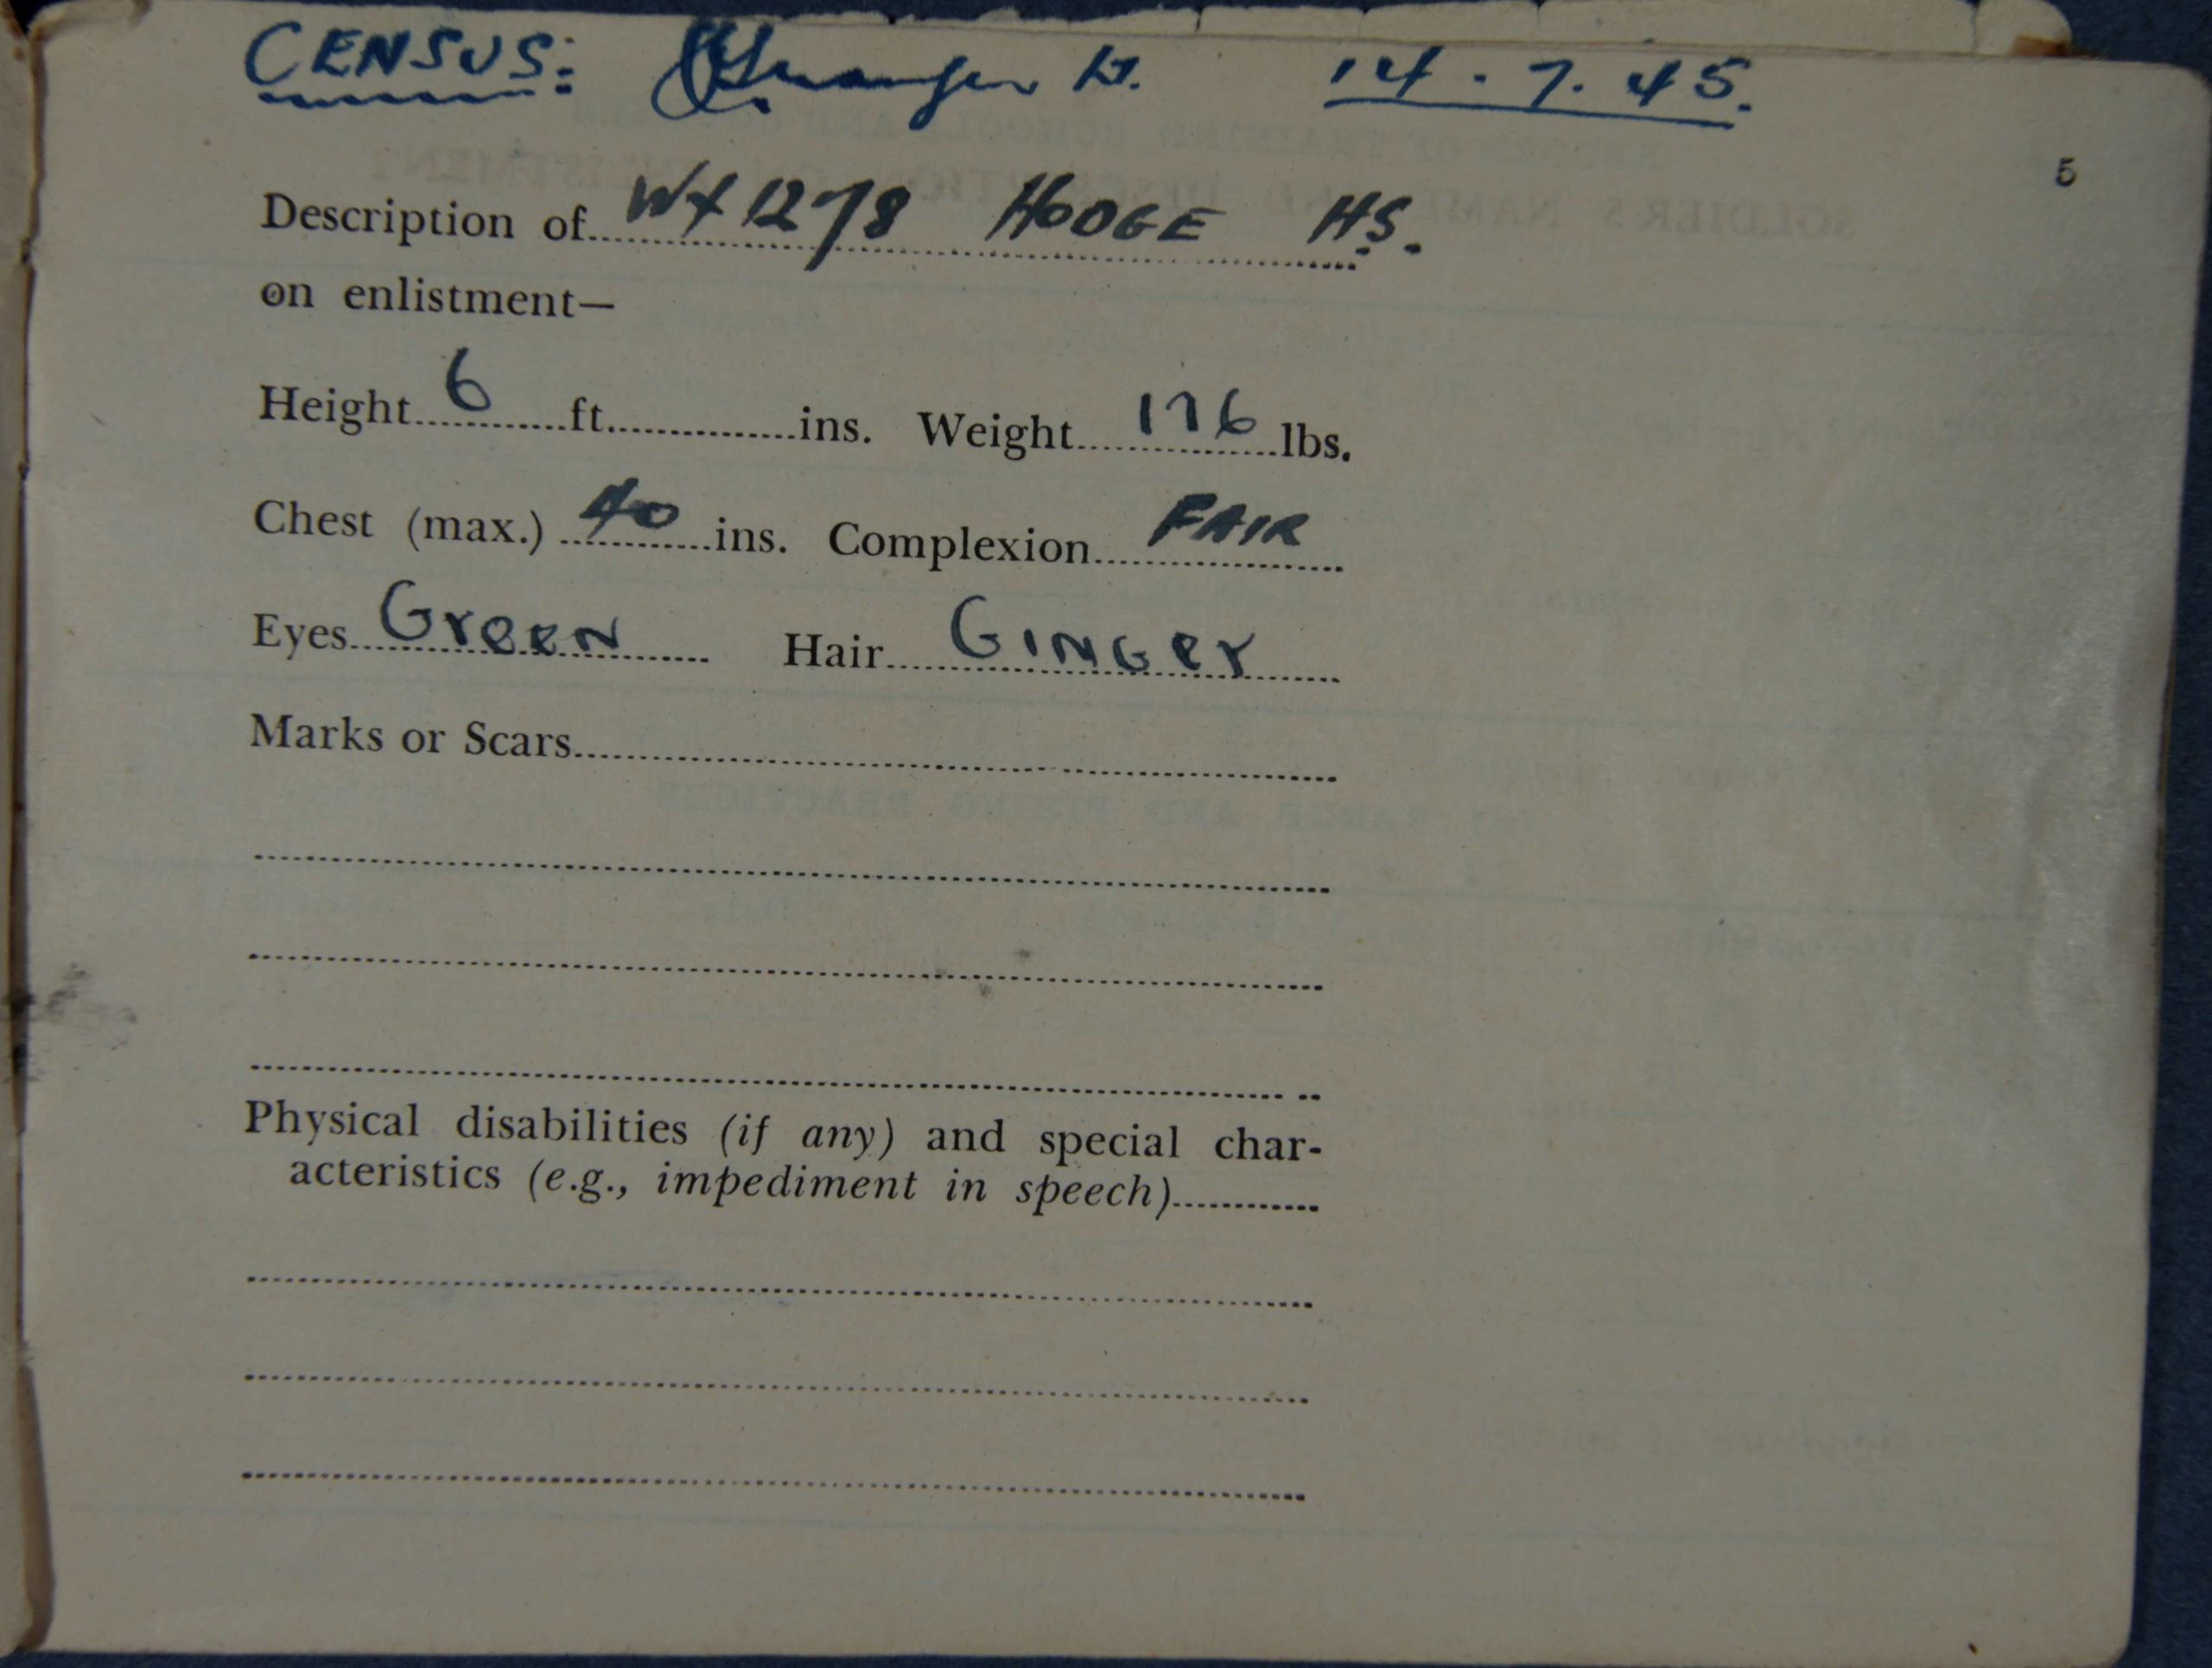 CENSUS: Lt. 14.7.45.
5
Description of WX1278 HODGE H.S.
on enlistment—
Height 6 ft. ins. Weight 176 lbs.
Chest (max.) 40 ins. Complexion FAIR
Eyes GreeN Hair GINGer
Marks or Scars
Physical disabilities (if any) and special char-
acteristics (e.g., impediment in speech)